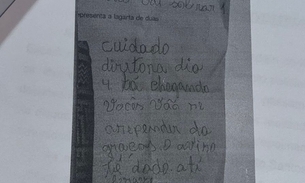 vai
presenta a lagarta de duas
cuidado
diretora dia
4 tá chegando
vocês vão se
arrepender da
graças o aviso
já dado até